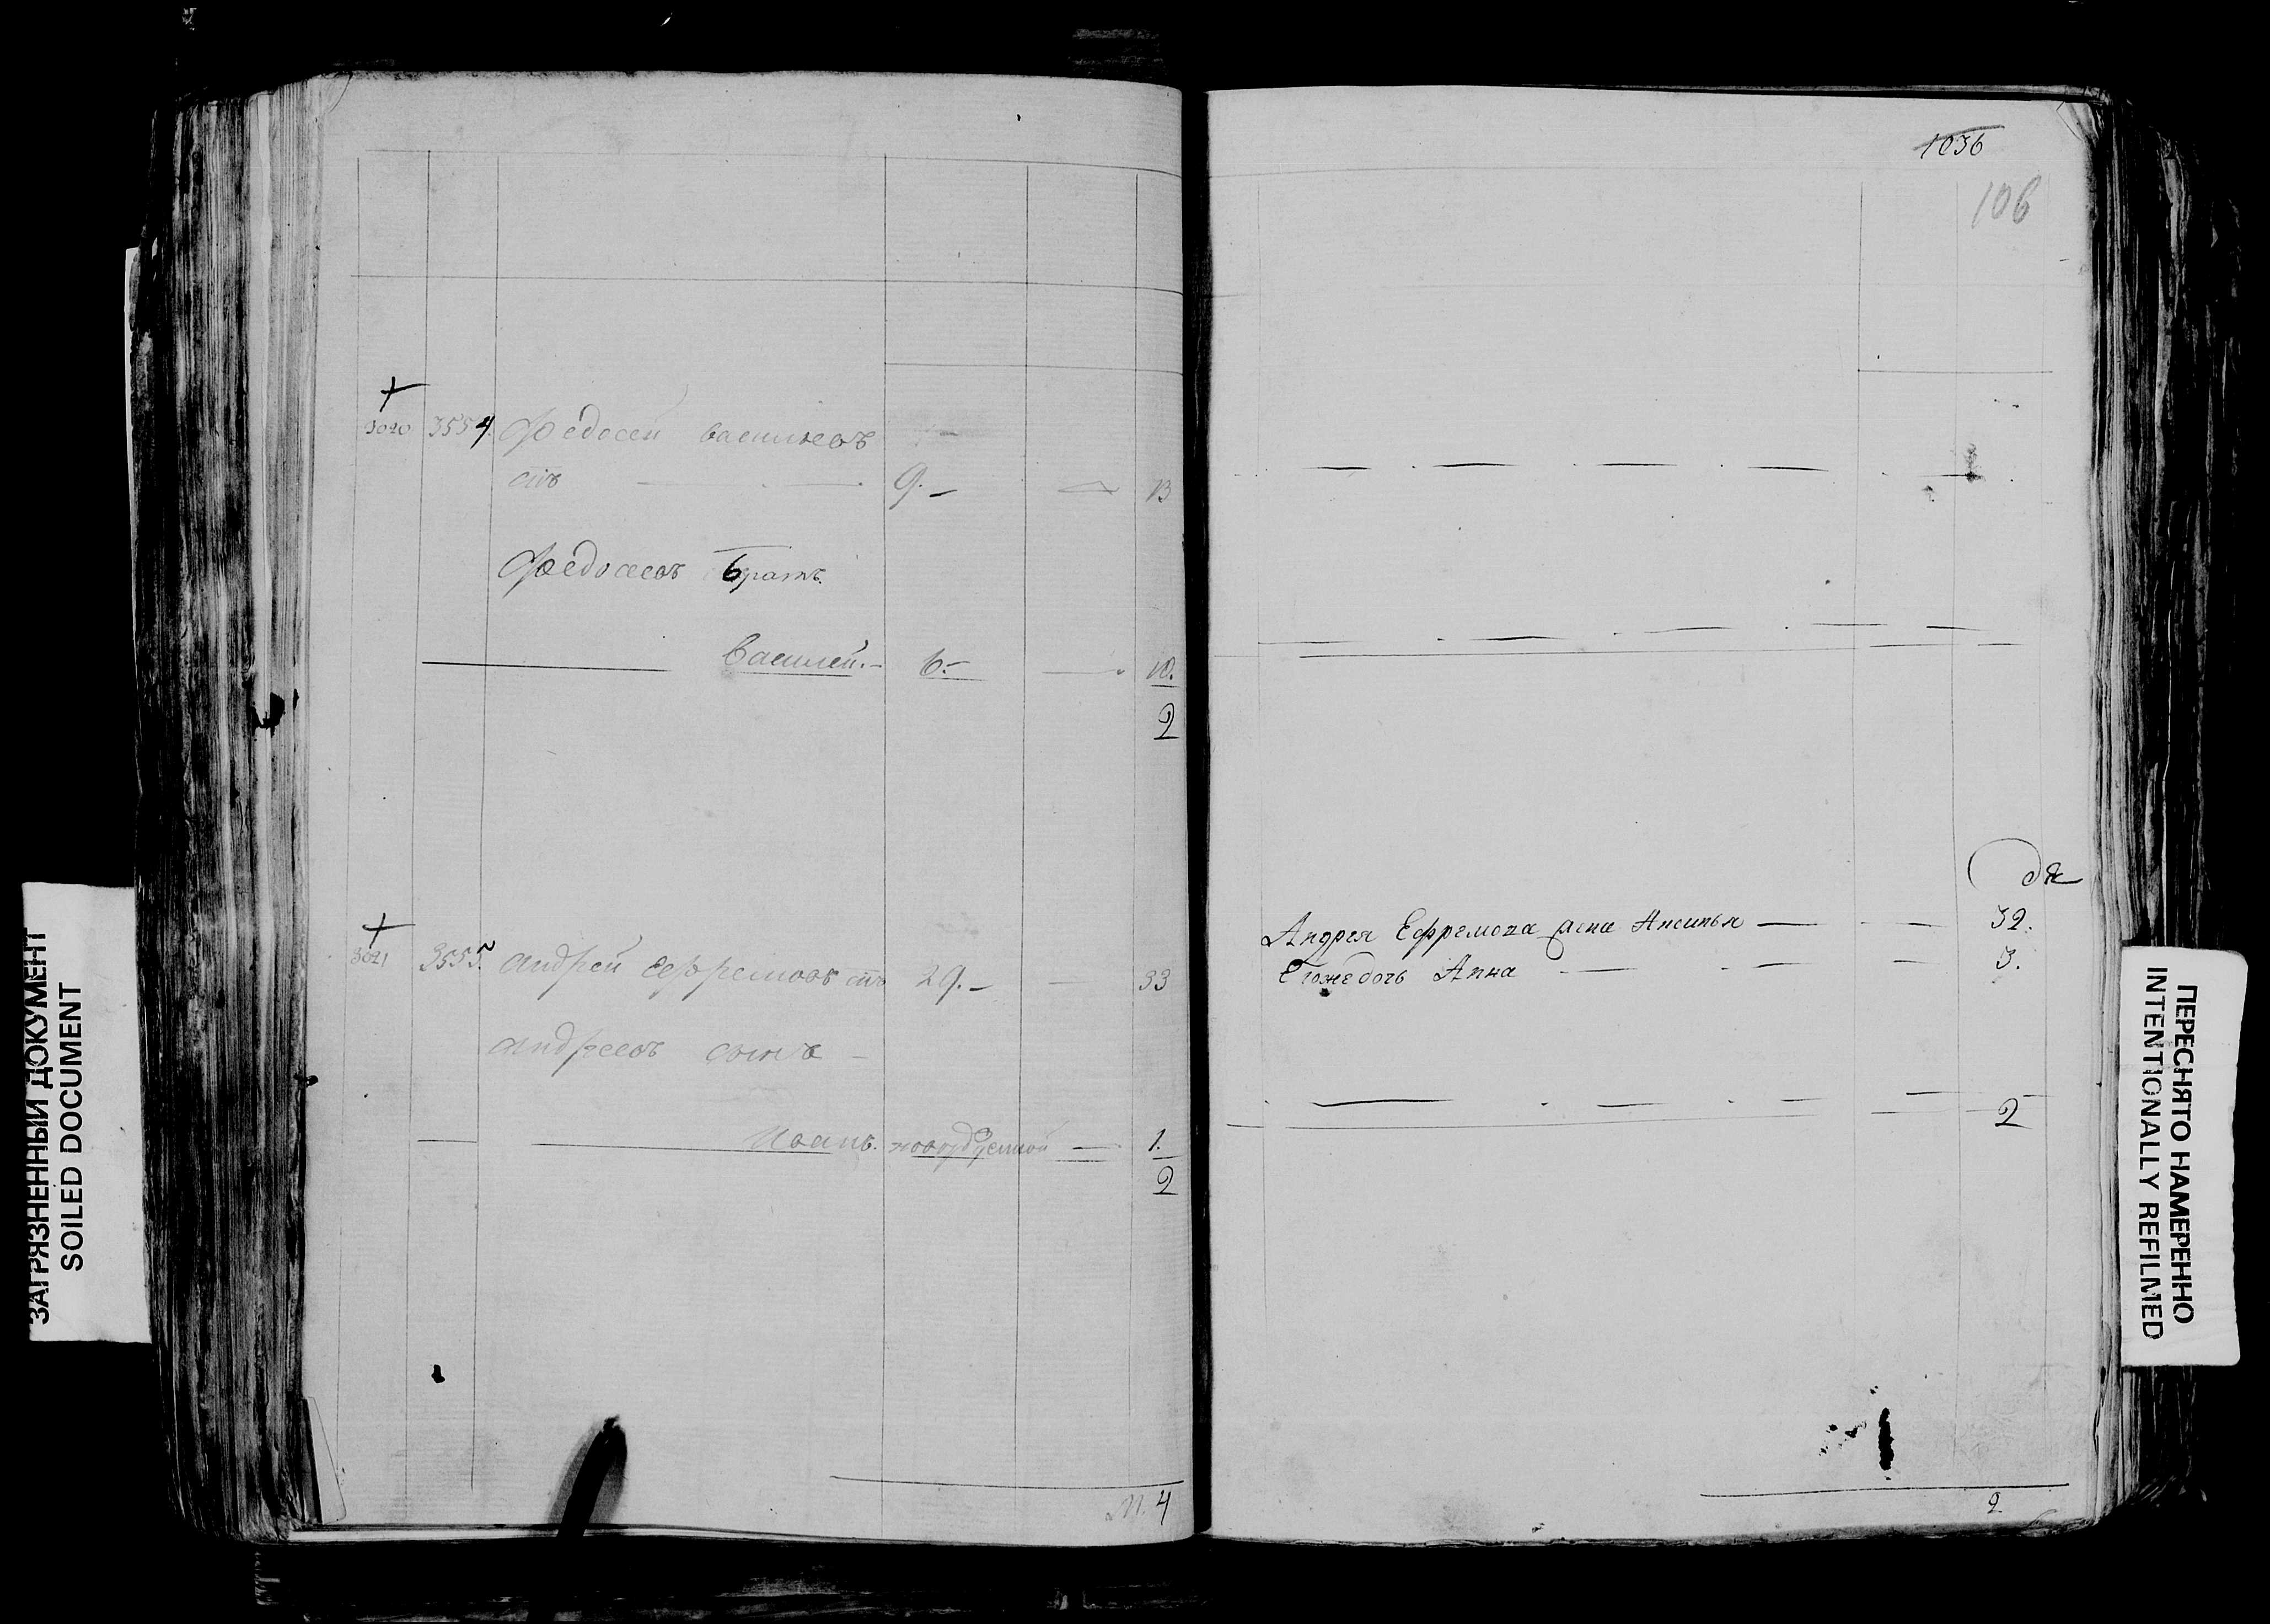 3020 3554 Федосей васильевъ
снъ 9. 13
Федосеевъ братъ
Василей. 6. 10.
2
3021 3555. андрей ефремовъ снъ 29. 33
андреевъ сынъ
Иванъ. новорожденной 1.
2
М. 4
1036
106
Андрея Ефремова жена Аксинья 32.
Егоже дочь Анна 3.
2
2
ЗАГРЯЗНЕННЫЙ ДОКУМЕНТ
SOILED DOCUMENT
ПЕРЕСНЯТО НАМЕРЕННО
INTENTIONALLY REFILMED